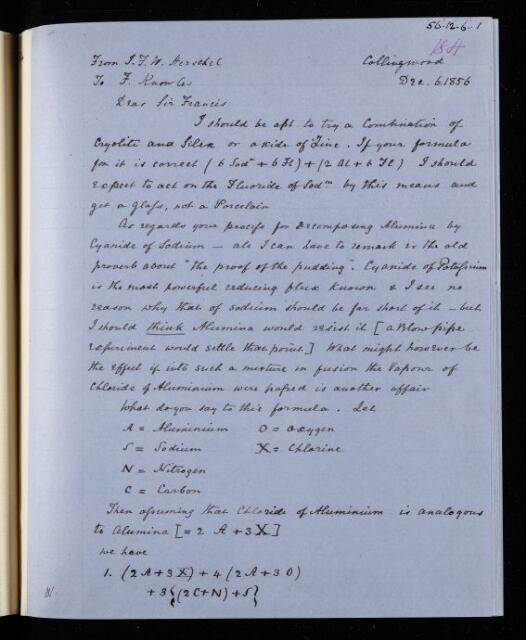 56.12.6.1
From J.F.W. Herschel Collingwood
To F. Knowles Dec. 6. 1856
Dear Sir Francis
I should be apt to try a Combination of
Cryolite and Silex or oxide of Zinc. If your formula
for it is correct (6 Sodm + 6 Fl) + (2 Al + 6 Fl) I should
expect to act on the Fluoride of Sodm by this means and
get a glass, not a Porcelain
As regards your process for decomposing Alumina by
Cyanide of Sodium — all I can have to remark is the old
proverb about "the proof of the pudding". Cyanide of Potassium
is the most powerful reducing flux known & I see no
reason why that of sodium should be far short of it — but
I should think Alumina would resist it [a Blow-pipe
experiment would settle that point] What might however be
the effect if into such a mixture in fusion the Vapour of
Chloride of Aluminium were passed is another affair
What do you say to this formula. Let
A = Aluminium O = Oxygen
S = Sodium X = Chlorine
N = Nitrogen
C = Carbon
Then assuming that Chloride of Aluminium is analogous
to Alumina [= 2 A + 3 X]
we have
1. (2A + 3X) + 4 (2A + 3O)
+ 3 {(2C + N) + S}